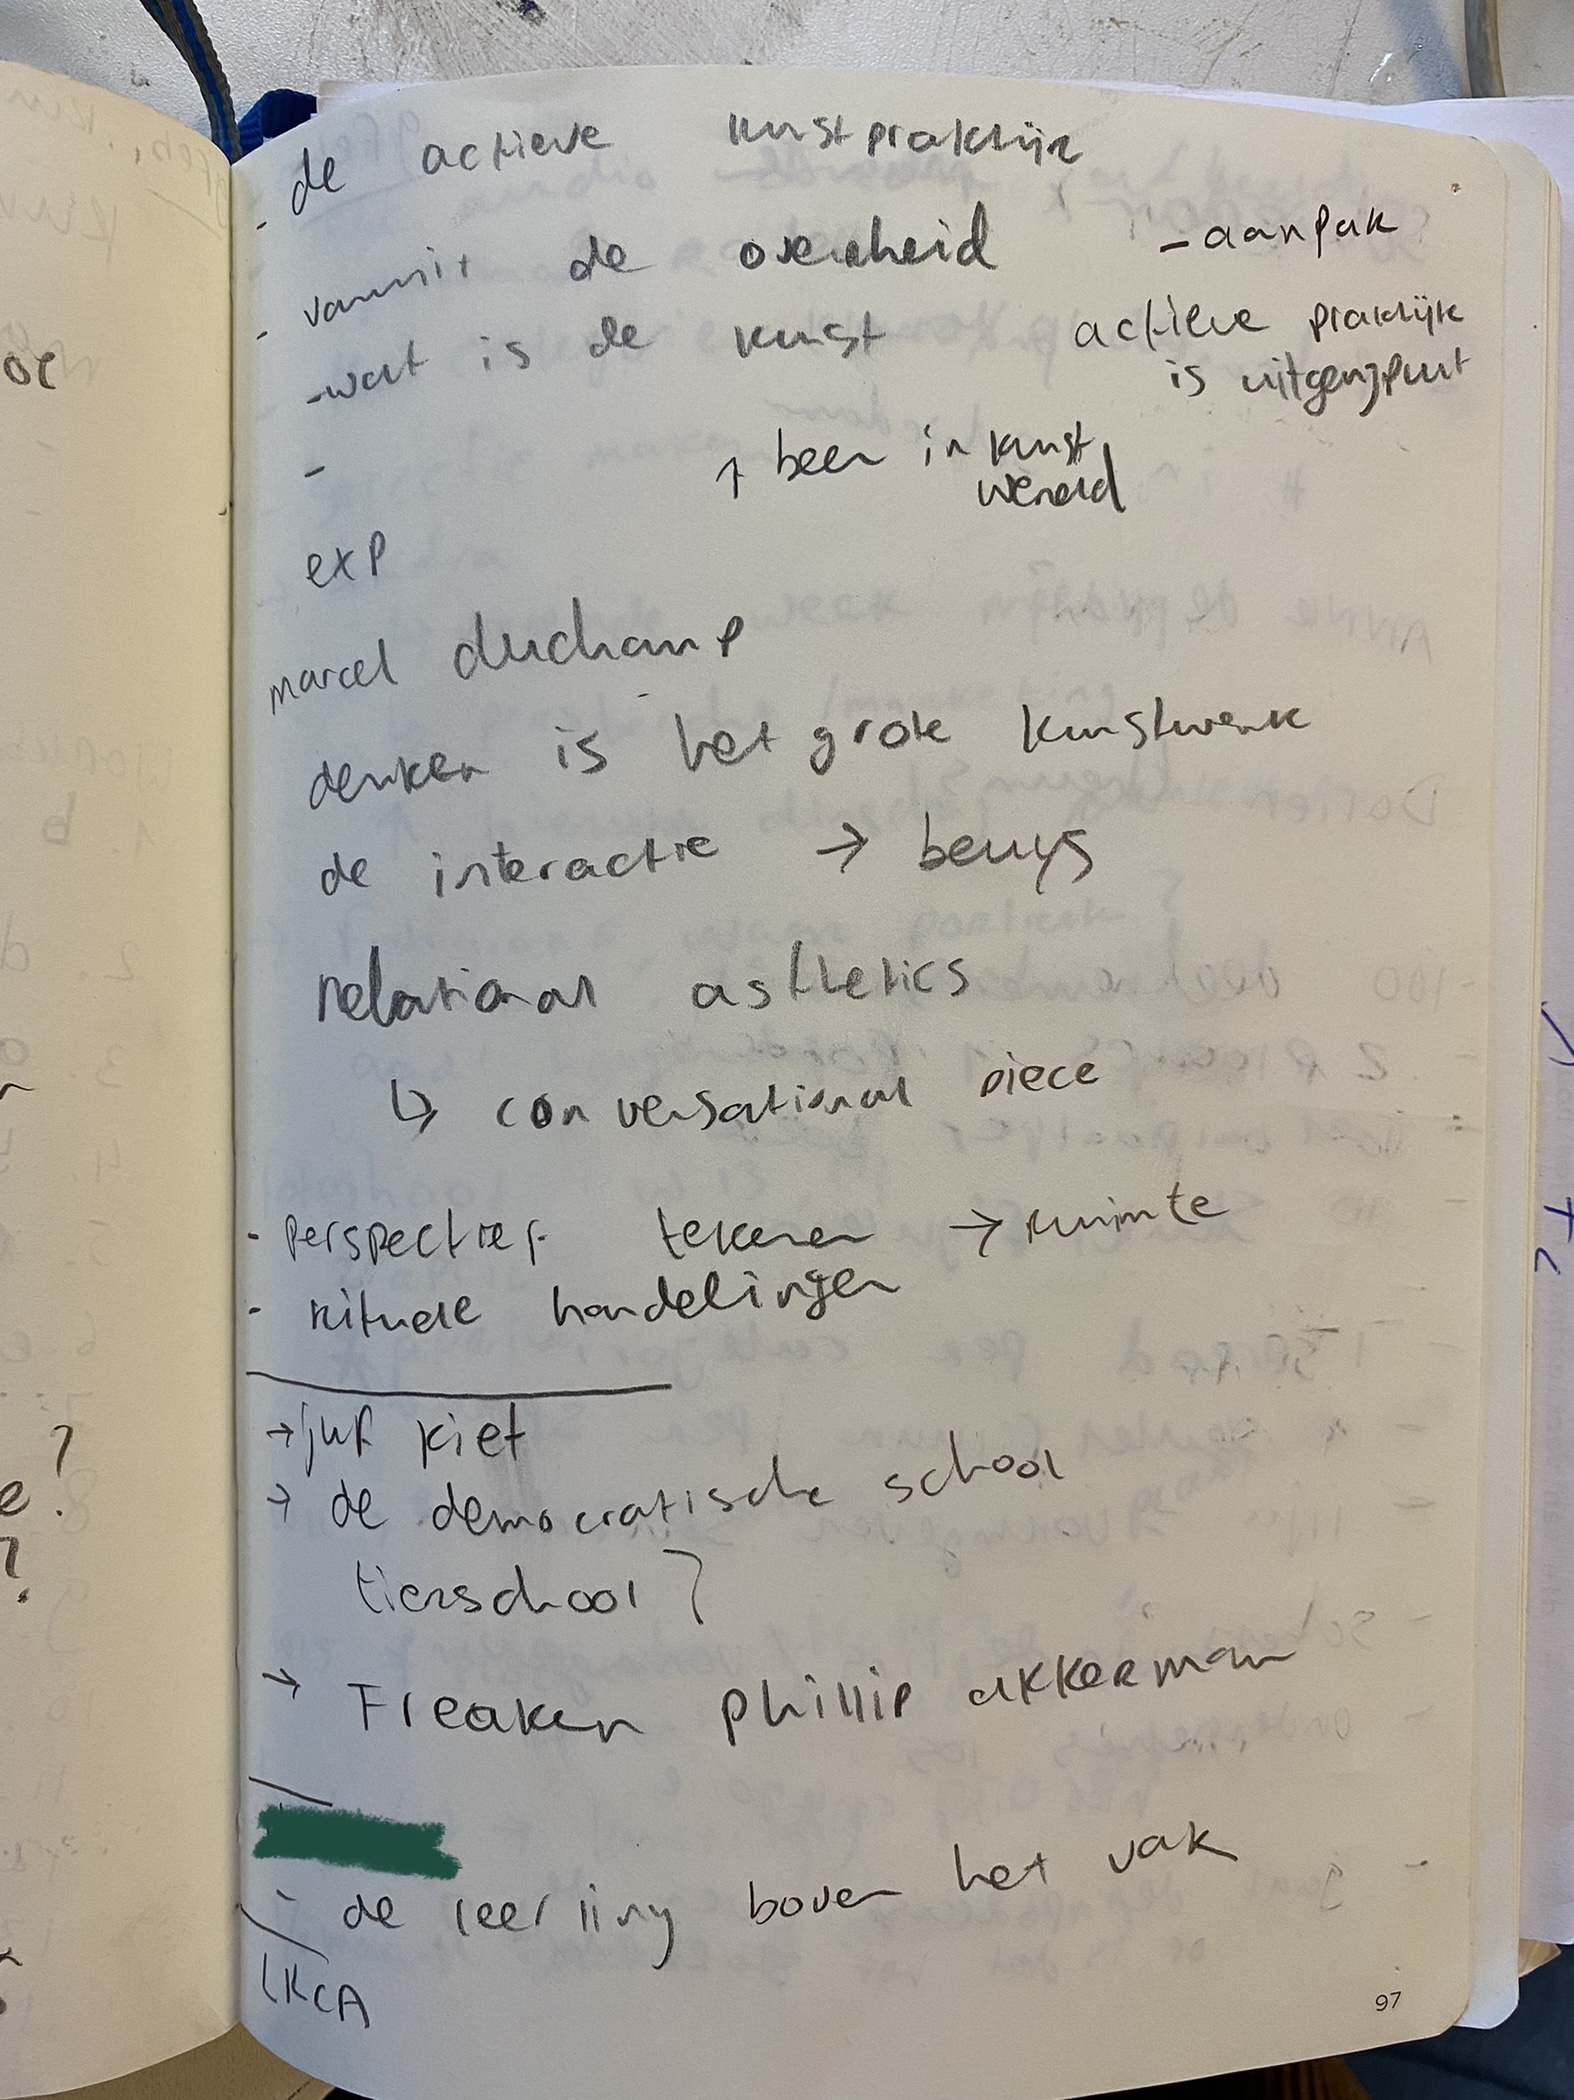 - de actieve kunstpraktijk
- vanuit de overheid
- aanpak
- wat is de kunst
actieve praktijk
is uitgangspunt
-
↑ been in kunst
wereld
exp
marcel duchamp
denken is het grote kunstwerk
de interactie → beuys
relational asthetics
↳ conversational piece
- perspectief tekenen → ruimte
- rituele handelingen
→ juf kiet
→ de democratische school
tierschool?
→ Freaken phillip akkerman
- de leerling boven het vak
LKCA
97